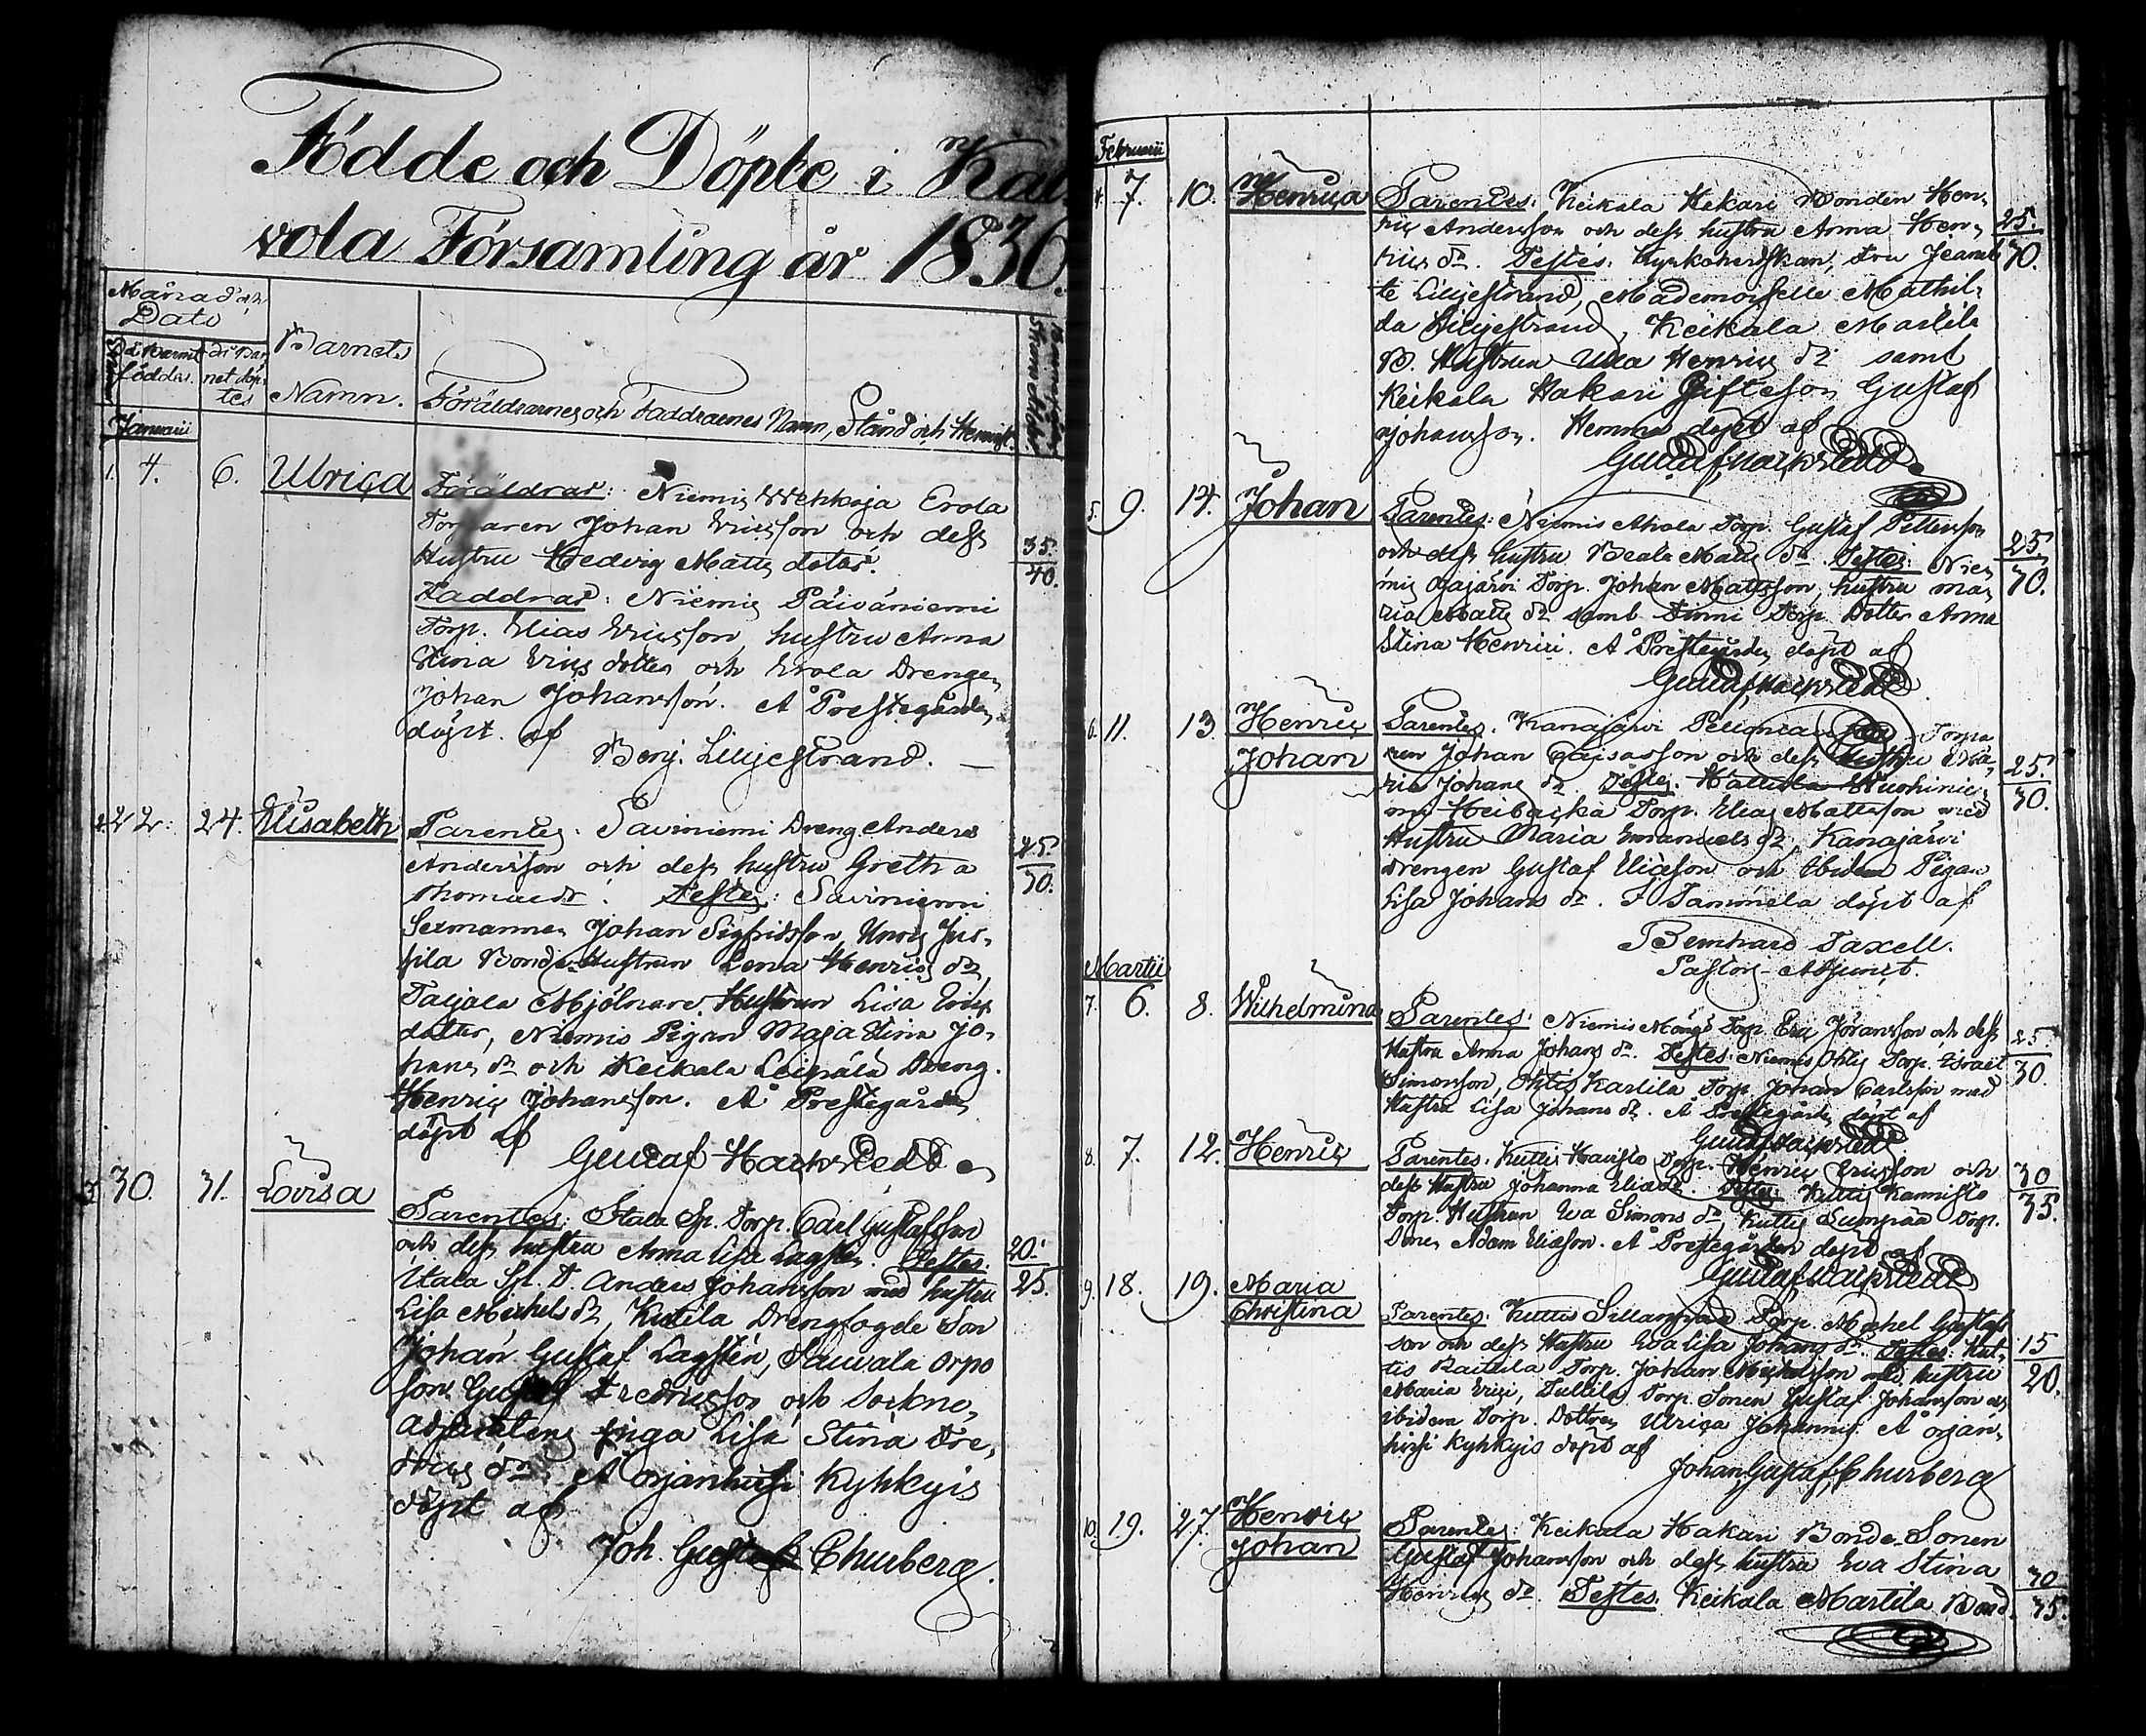 Födde och Döpte i Kal
vola Församling år 1830.
Månad och
Dato
Då Barnet
föddes.
då Bar
net döp
tes
Barnets
Namn.
Föräldrarnes och Faddrarnes Namn, Stånd och Hemvist.
Januarii
1. 4. 6. Ulrica
Föräldrar: Niemis Erola
Torparen Johan Ericsson och dess
Hustru Hedvig Matts dotter.
35.
40.
Faddrar: Niemis Päiväniemi
Torp. Elias Ericsson, hustru Anna
Stina Erics dotter och Erola Drengen
Johan Johansson. Å Prestegården
döpt af
Benj. Lilljestrand.
2. 22. 24. Elisabeth
Parentes. Saviniemi Dreng Anders
Andersson och dess hustru Gretha
Thomaedr. Testes: Saviniemi
25.
30.
Johan Sigfridsson,
Bonde Hustrun Lena Henrics dr,
Taljala Mjölnare Hustrun Lisa Erics
dotter, Niemis Pigan Maja Stina Jo-
hans dr och Keikala Leipälä Dreng.
Henric Johansson. Å Prestegården
döpt af
Gustaf
3. 30. 31. Lovisa
Parentes: Itala Sp. Torp. Carl Gustafsson
och dess hustru Anna Lisa Lagsten. Testes:
20.
25.
Itala Spl. T. Anders Johansson med hustru
Lisa Michels dr, Kutila Drengfogde Son
Johan Gustaf Lagstén, Sauvala Orpo
son Gustaf Fredricsson och Sockne,
Adjutantens piga Lisa Stina Fre,
drics dr. Å Orjanhirsi Kyhkyis
döpt af
Joh. Gustaf Churberg.
Februarii
4. 7. 10. Henrica
Parentes: Keikala Hakari Bonden Hen,
ric Andersson och dess hustru Anna Hen,
rics dr. Testes: Kyrkoherdskan, Fru Jeanet
25.
30.
te Lilljestrand, Mademoiselle Mathil-
da Lilljestrand, Keikala Martila
B. Hustrun Ulla Henrics dr samt
Keikala Hakari Gifteson Gustaf
Johansson. Hemma döpt af
Gustaf
5. 9. 14. Johan
Parentes: Niemis Ahola Torp. Gustaf Pettersson
och dess hustru Beata Matts dr. Testes: Nie,
25
30.
mis Torp. Johan Mattsson, hustru Ma,
ria Matts dr samt Torp. Dotter Anna
Stina Henrici. Å Prestegården döpt af
Gustaf
6. 11. 13. Henric
Johan
Parentes. Kanajärvi Torpa
ren Johan Cajsasson och dess Hustru Ma,
ria Johans dr. Testes.
25.
30.
Torp. Elias Mattsson med
Hustru Maria Emanuels dr, Kanajärvi
Drengen Gustaf Ericsson och Ibidem Pigan
Lisa Johans dr. I Tammela döpt af
Bernhard Taxell.
Pastors-Adjunct.
Martii
7. 6. 8. Wilhelmina
Parentes: Niemis Torp. Eric Jöransson och dess
Hustru Anna Johans dr. Testes: Niemis Ohtis Torp. Israel
25.
30.
Simonsson, Ohtis Karlila Torp. Johan Carlsson med
Hustru Lisa Johans dr. Å Prestegården döpt af
Gustaf
8. 7. 12. Henric
Parentes. Kuttis Havisto Torp. Henric Ericsson och
dess Hustru Johanna Eliædr. Testes Kuttis Kannisto
30
35.
Torp. Hustrun Eva Simons dr, Kuttis Torp.
Adam Eliæson. Å Prestegården döpt af
Gustaf
9. 18. 19. Maria
Christina
Parentes: Kuttis Sillanpää Torp. Michel Gustafs
son och dess Hustru Eva Lisa Johans dr. Testes: Kut-
15
20.
tis Torp. Johan Michelsson med hustru
Maria Erici, Torp. Sonen Gustaf Johansson och
ibidem Torp. Dottren Ulrica Johannis. Å Orjan,
hirsi Kyhkyis döpt af
Johan Gustaf Churberg
10. 19. 27. Henric
Johan
Parentes: Keikala Hakari Bonde-Sonen
Gustaf Johansson och dess hustru Eva Stina
30
35.
Henrics dr. Testes. Keikala Martila Bond.